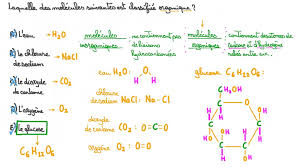 Laquelle des molécules suivantes est classifiée organique ?
A) L'eau → H₂O
B) Le chlorure de sodium → NaCl
C) Le dioxyde de carbone → CO₂
D) L'oxygène → O₂
E) Le glucose
C₆H₁₂O₆
molécules inorganiques : ne contiennent pas de liaisons hydrocarbonées
molécules organiques : contiennent des atomes de carbone et d'hydrogène reliés entre eux
eau H₂O : H O H
chlorure de sodium NaCl : Na-Cl
dioxyde de carbone CO₂ : O=C=O
oxygène O₂ : O=O
glucose C₆H₁₂O₆ :